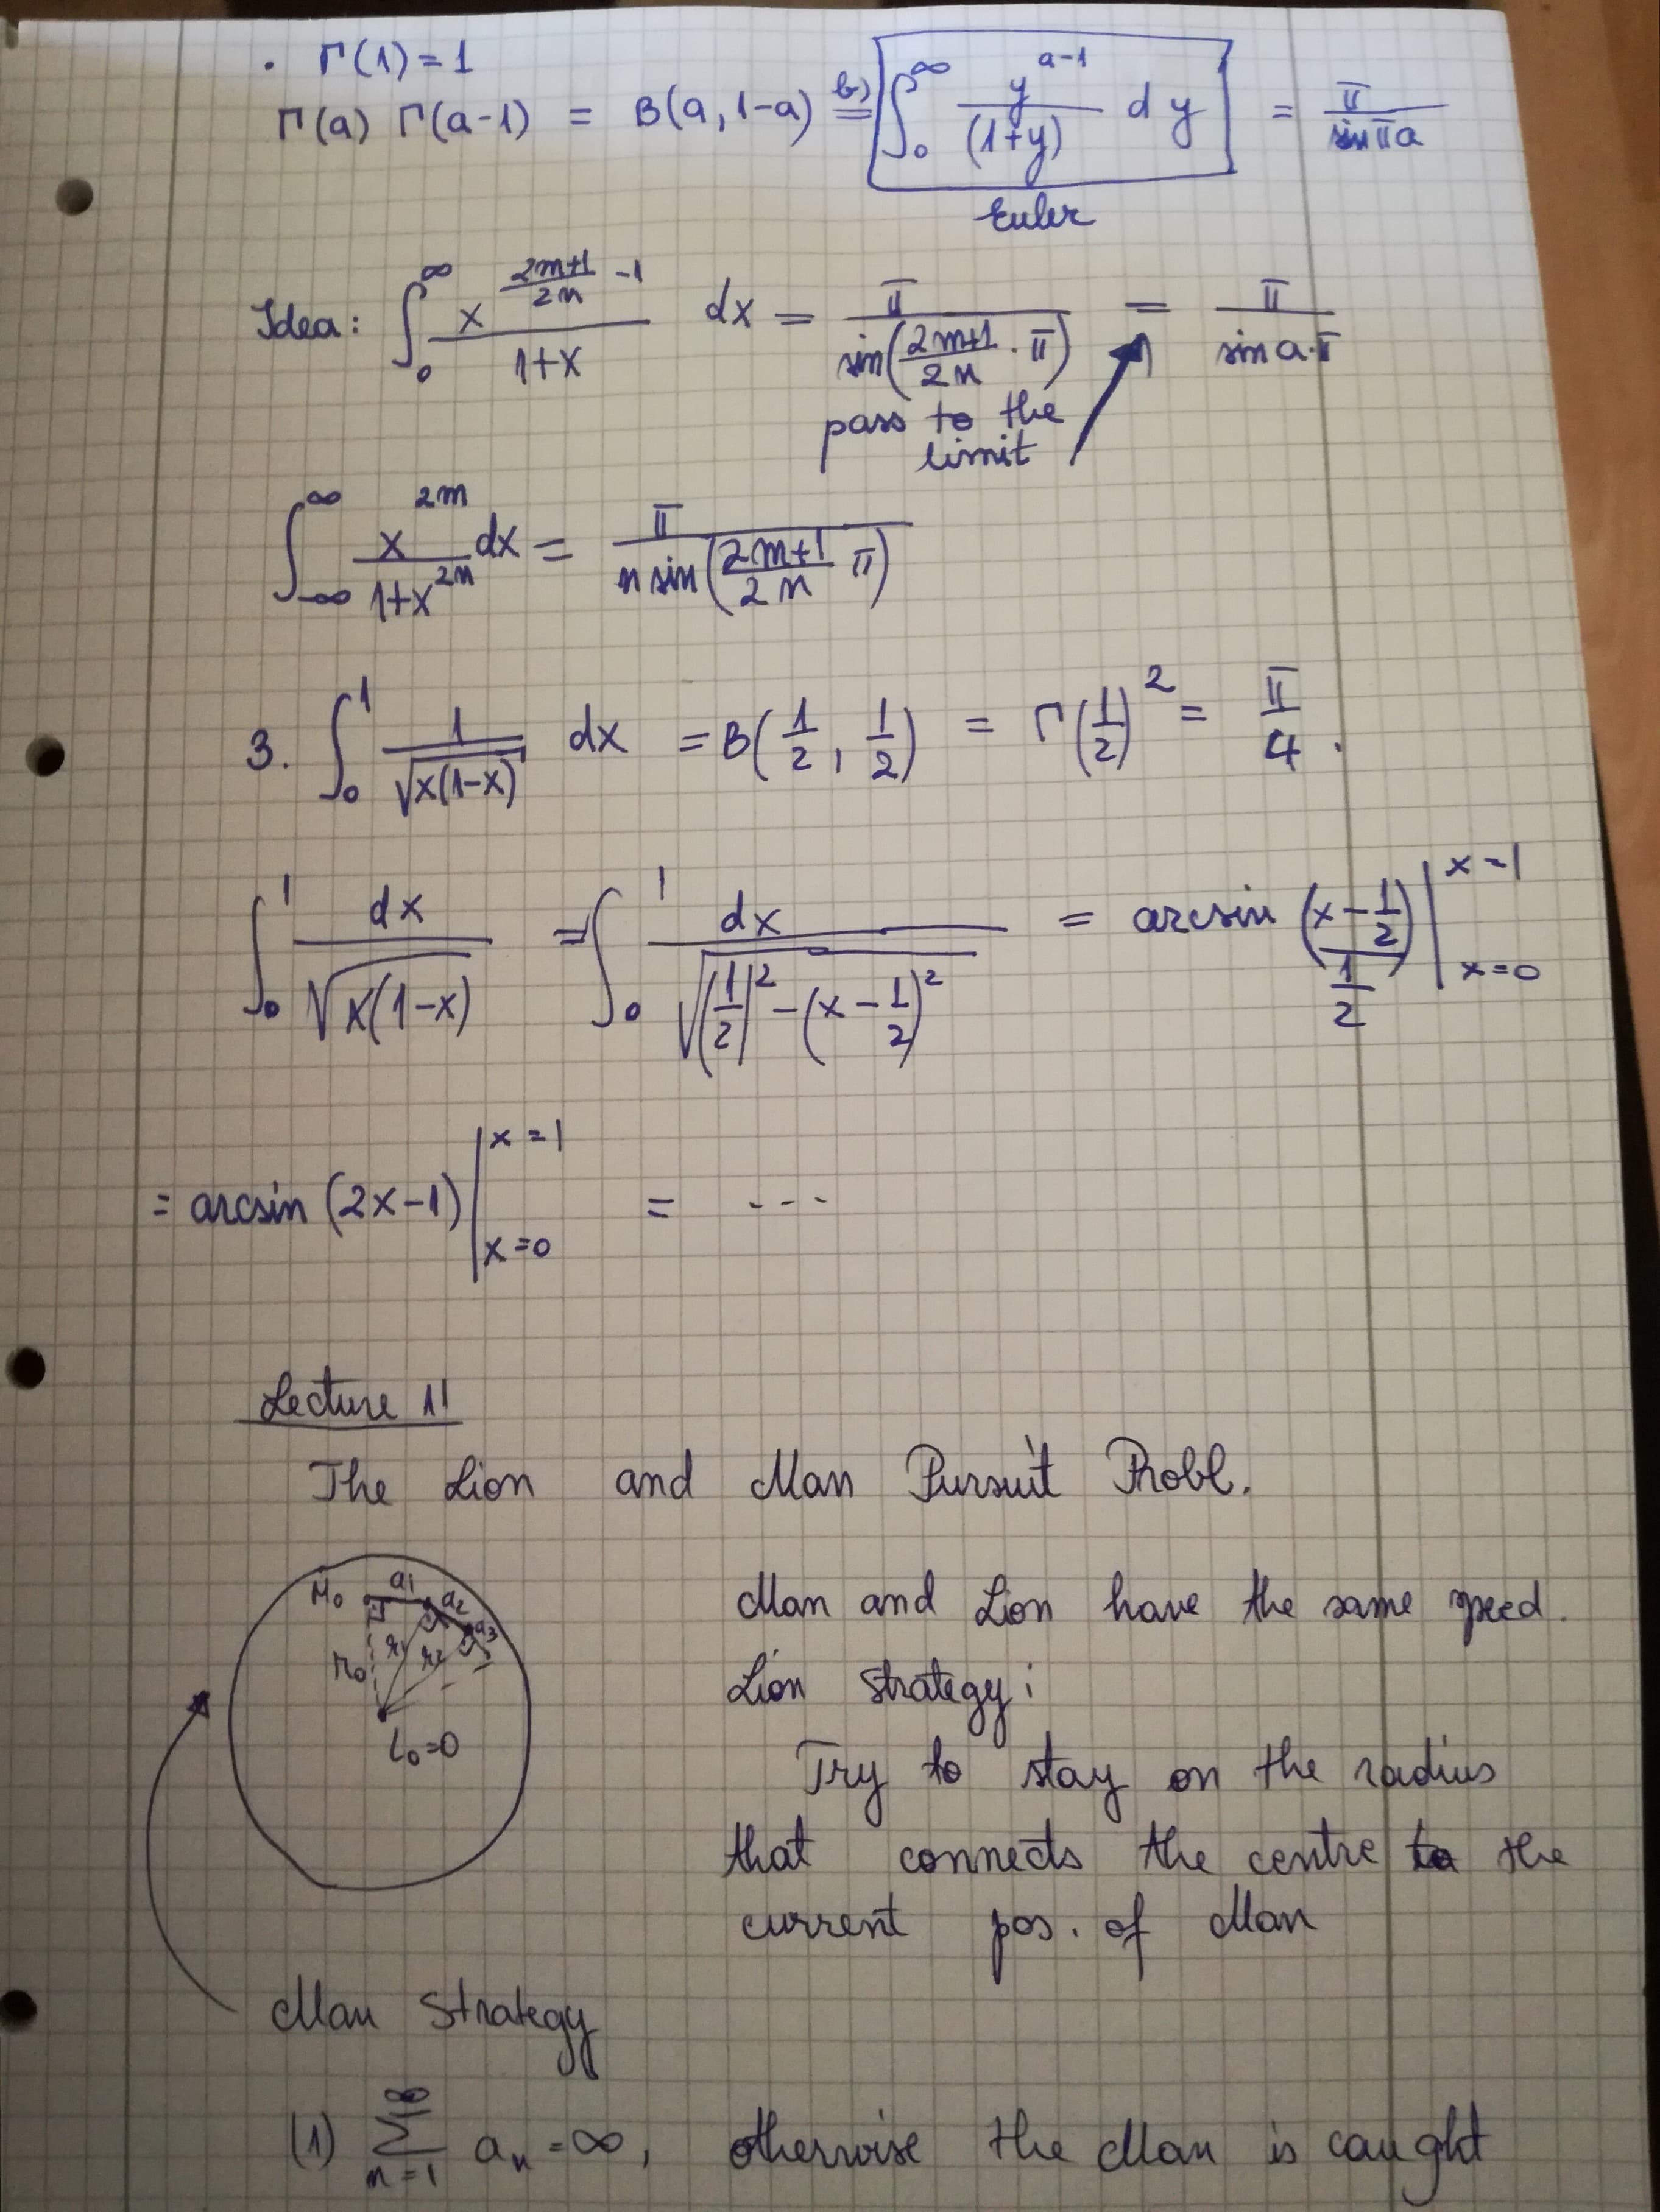 · Γ(1) = 1
Γ(a) Γ(a-1) = B(a, 1-a) =^{b)} ∫_0^∞ y^{a-1}/(1+y) dy = π/(sin πa)
Euler
Idea: ∫_0^∞ x^{(2m+1)/(2n) - 1}/(1+x) dx = π/(sin((2m+1)/(2n) · π)) = π/(sin a·π)
pass to the
limit
∫_{-∞}^∞ x^{2m}/(1+x^{2n}) dx = π/(n sin((2m+1)/(2n) π))
3. ∫_0^1 1/√(x(1-x)) dx = B(1/2, 1/2) = Γ(1/2)^2 = π/4 .
∫_0^1 dx/√(x(1-x)) = ∫_0^1 dx/√((1/2)^2 - (x - 1/2)^2) = arcsin (x - 1/2)/(1/2) |_{x=0}^{x=1}
= arcsin (2x-1) |_{x=0}^{x=1} = ---
Lecture 11
The Lion and Man Pursuit Probl.
M₀ a₁ a₂ a₃
r₀ r₁ r₂
L₀=0
Man and Lion have the same speed.
Lion strategy:
Try to stay on the radius
that connects the centre to the
current pos. of Man
Man Strategy
(1) ∑_{n=1}^∞ a_n = ∞, otherwise the Man is caught